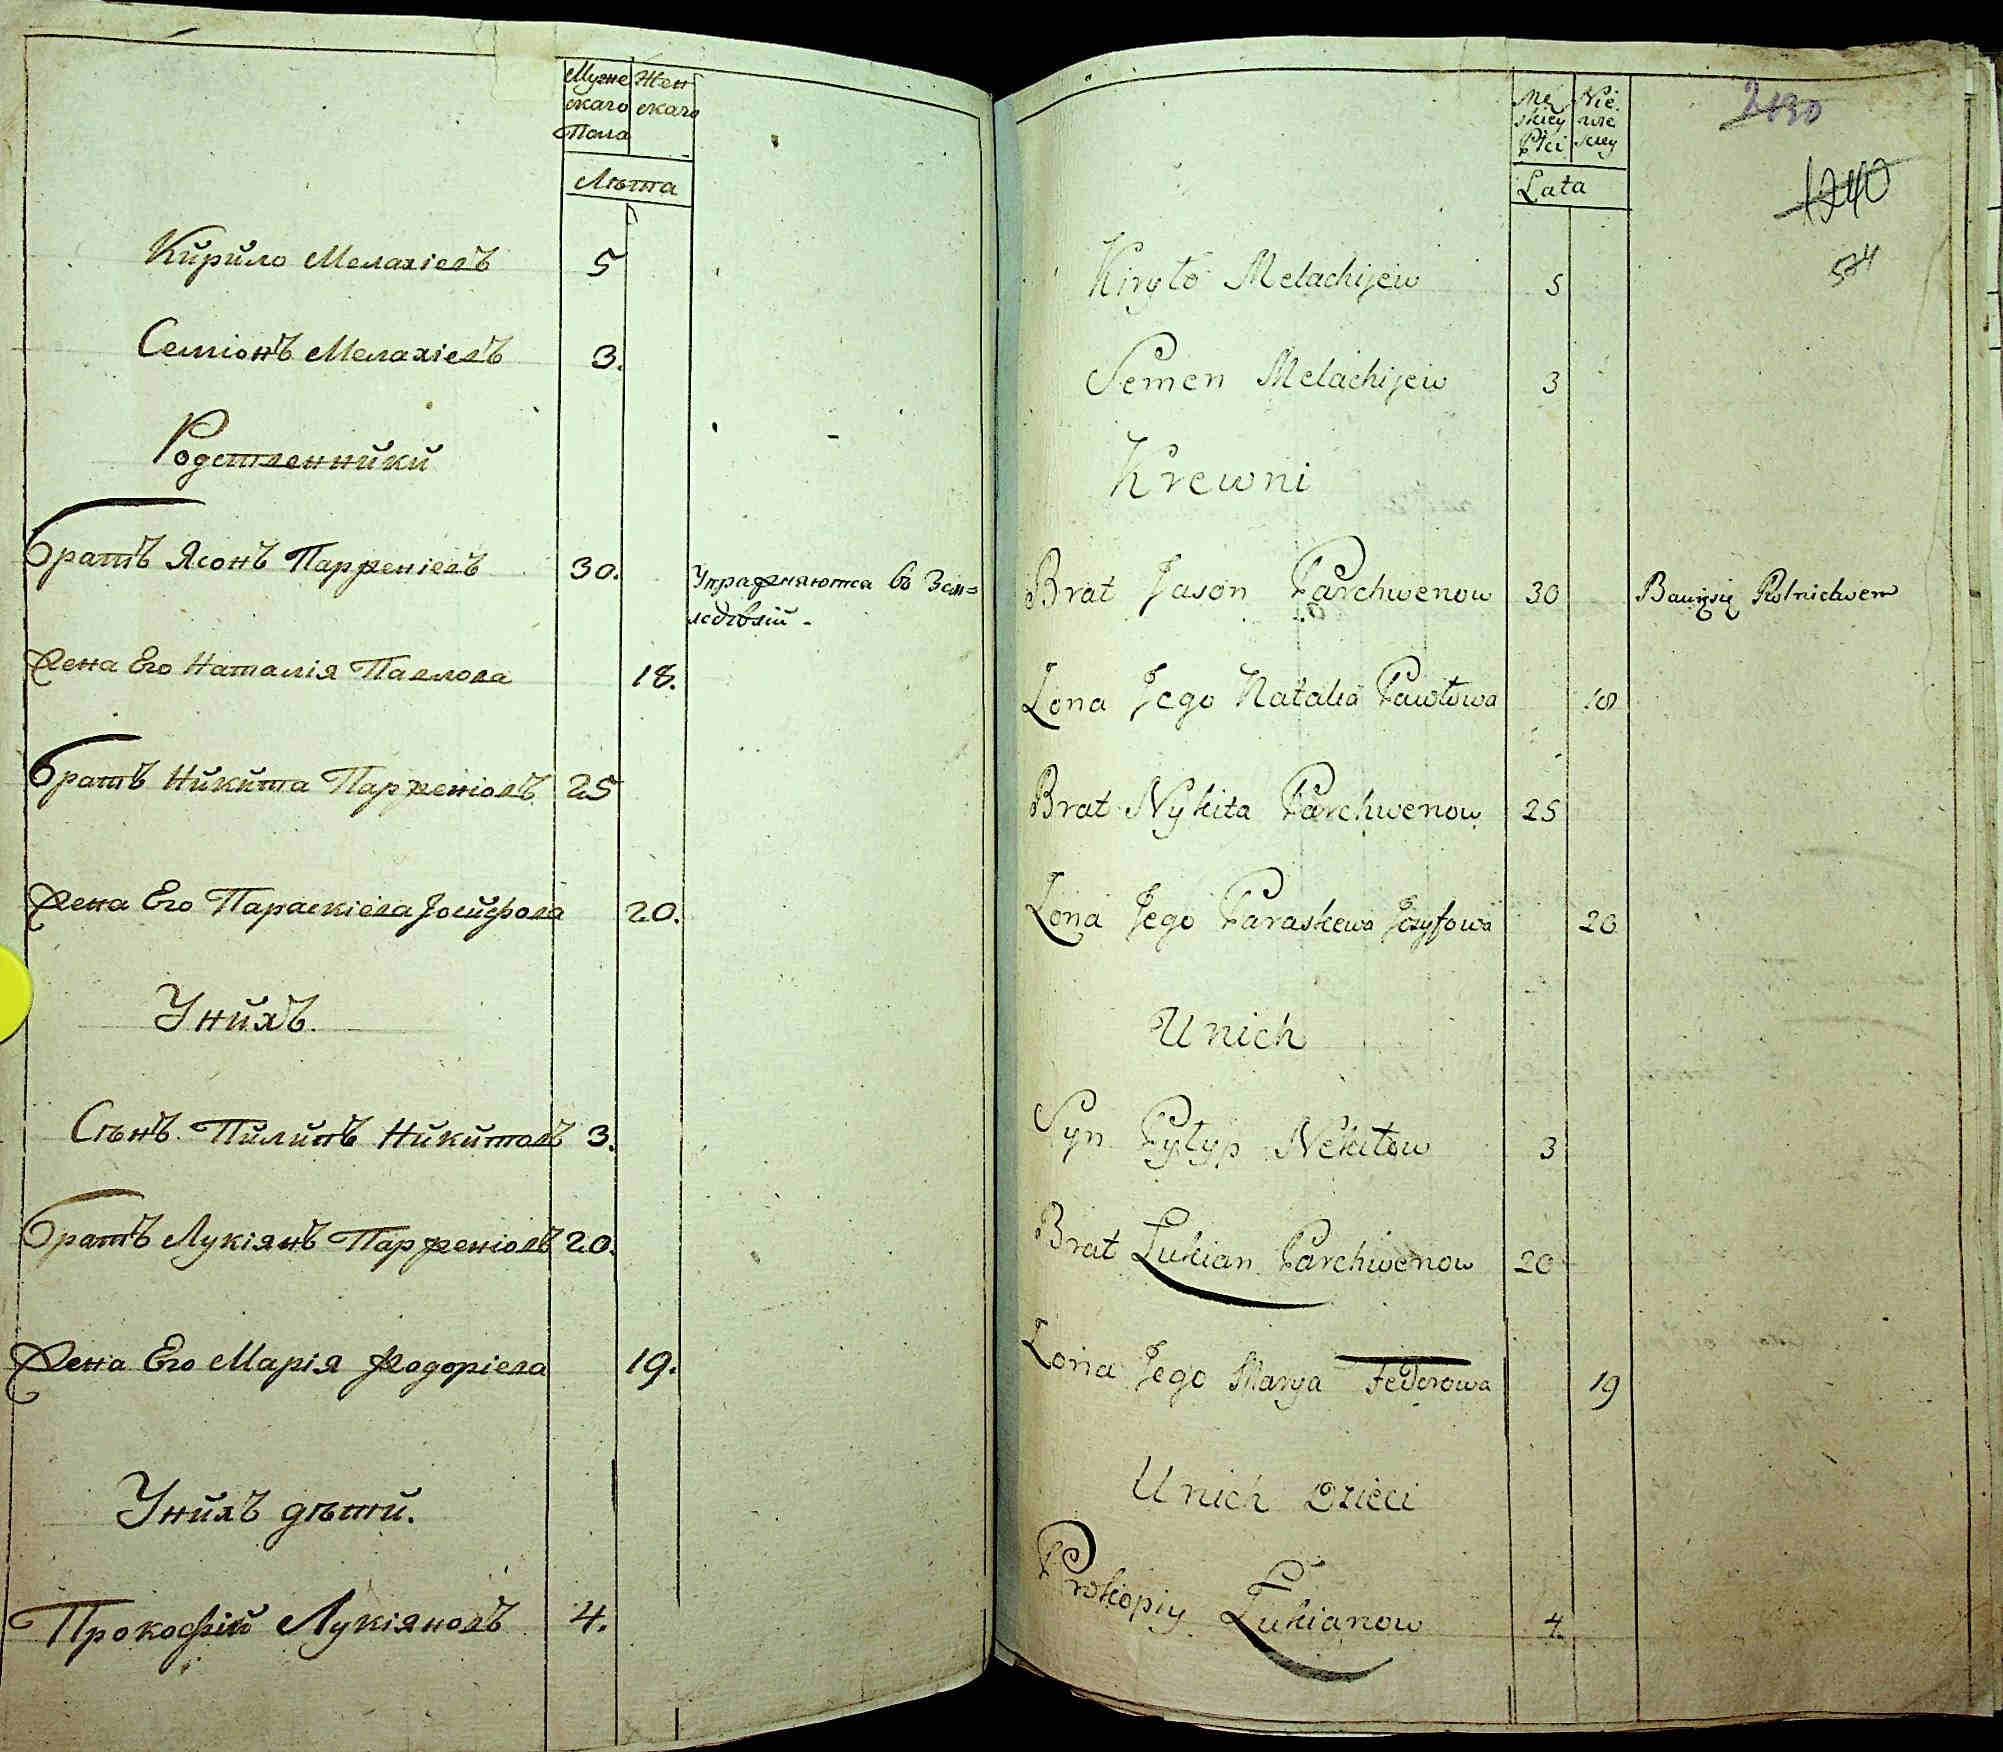 Муже Жен
скаго скаго
Пола
Лѣта
Кирило Мелахіевъ 5
Семіонъ Мелахіевъ 3.
Родственники
братъ Ясонъ Парфеніевъ 30. Упражняются во Зем=
ледѣлій -
Жена Его Наталія Павлова 18.
братъ Никита Парфеніовъ 25
Жена Его Параскіева Іосифова 20.
Унихъ.
Сынъ Пилипъ Никитовъ 3.
братъ Лукіянъ Парфеніовъ 20.
Жена Его Марія Фодоріева 19.
Унихъ дѣти.
Прокофій Лукіяновъ 4.
Mę Nie
skiey wie
Płci sciey
Lata
2130
1240
574
Kiryło Melachijew 5
Semen Melachijew 3
Krewni
Brat Jason Parchwenow 30 Bawią się Rolnictwem
Żona Jego Natalia Pawłowa 18
Brat Nykita Parchwenow 25
Żona Jego Paraskewa Jozyfowa 20
Unich
Syn Pyłyp Nekitow 3
Brat Łukian Parchwenow 20
Żona Jego Marya Fedorowa 19
Unich Dzieci
Prokopiy Łukianow 4.